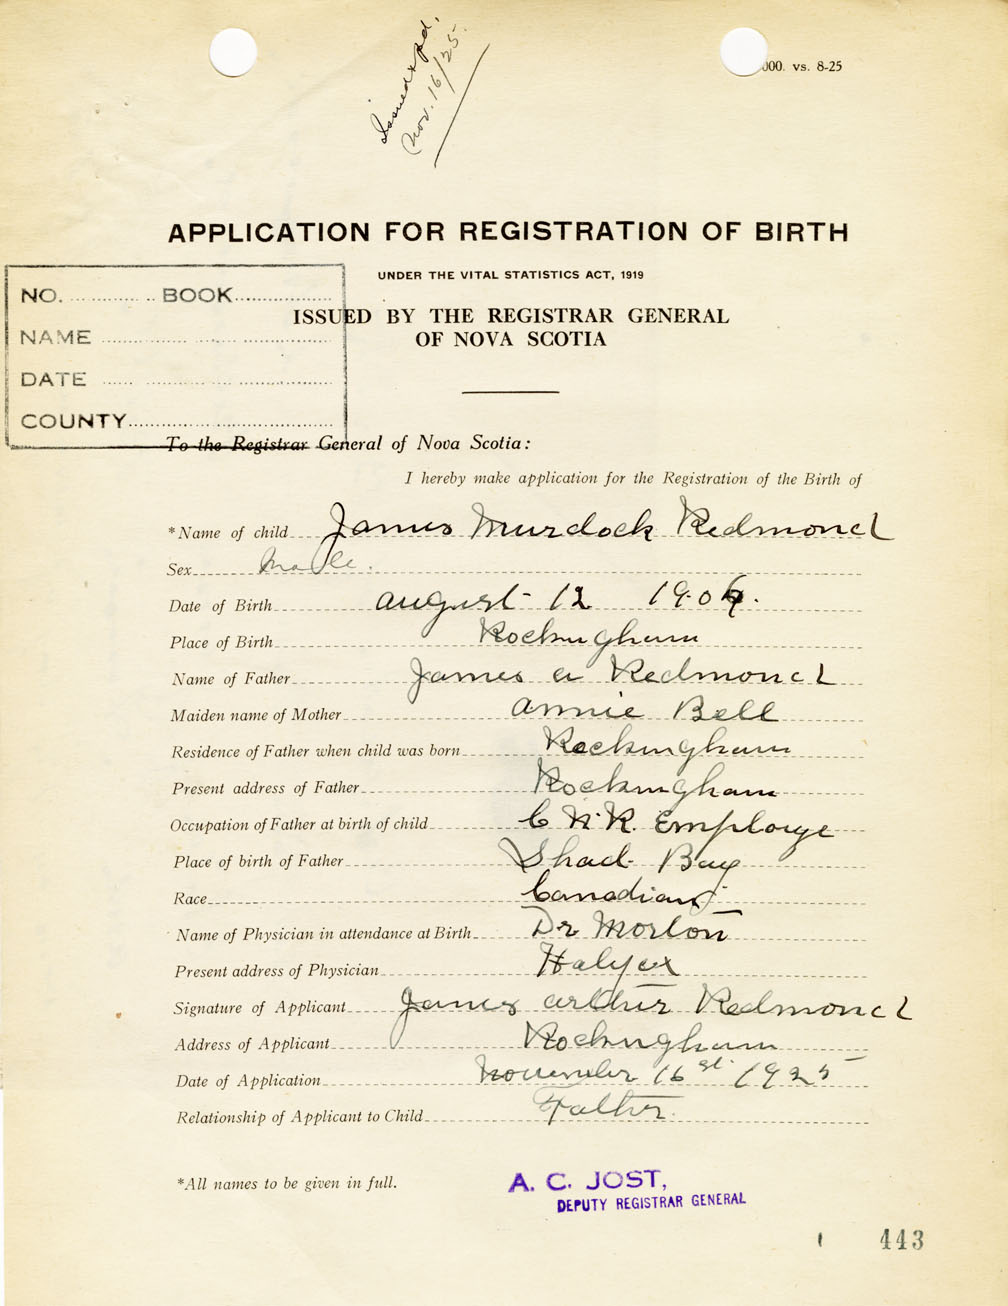 Issued & pd.
Nov. 16/25.
000. vs. 8-25
APPLICATION FOR REGISTRATION OF BIRTH
UNDER THE VITAL STATISTICS ACT, 1919
ISSUED BY THE REGISTRAR GENERAL
OF NOVA SCOTIA
NO. BOOK
NAME
DATE
COUNTY
To the Registrar General of Nova Scotia:
I hereby make application for the Registration of the Birth of
*Name of child James Murdock Redmond
Sex Male.
Date of Birth August 12 190
Place of Birth Rockingham
Name of Father James A Redmond
Maiden name of Mother Annie Bell
Residence of Father when child was born Rockingham
Present address of Father Rockingham
Occupation of Father at birth of child C N. R. Employe
Place of birth of Father Shad Bay
Race Canadian
Name of Physician in attendance at Birth Dr Morton
Present address of Physician Halifax
Signature of Applicant James Arthur Redmond
Address of Applicant Rockingham
Date of Application November 16st 1925
Relationship of Applicant to Child Father.
*All names to be given in full.
A. C. JOST,
DEPUTY REGISTRAR GENERAL
443